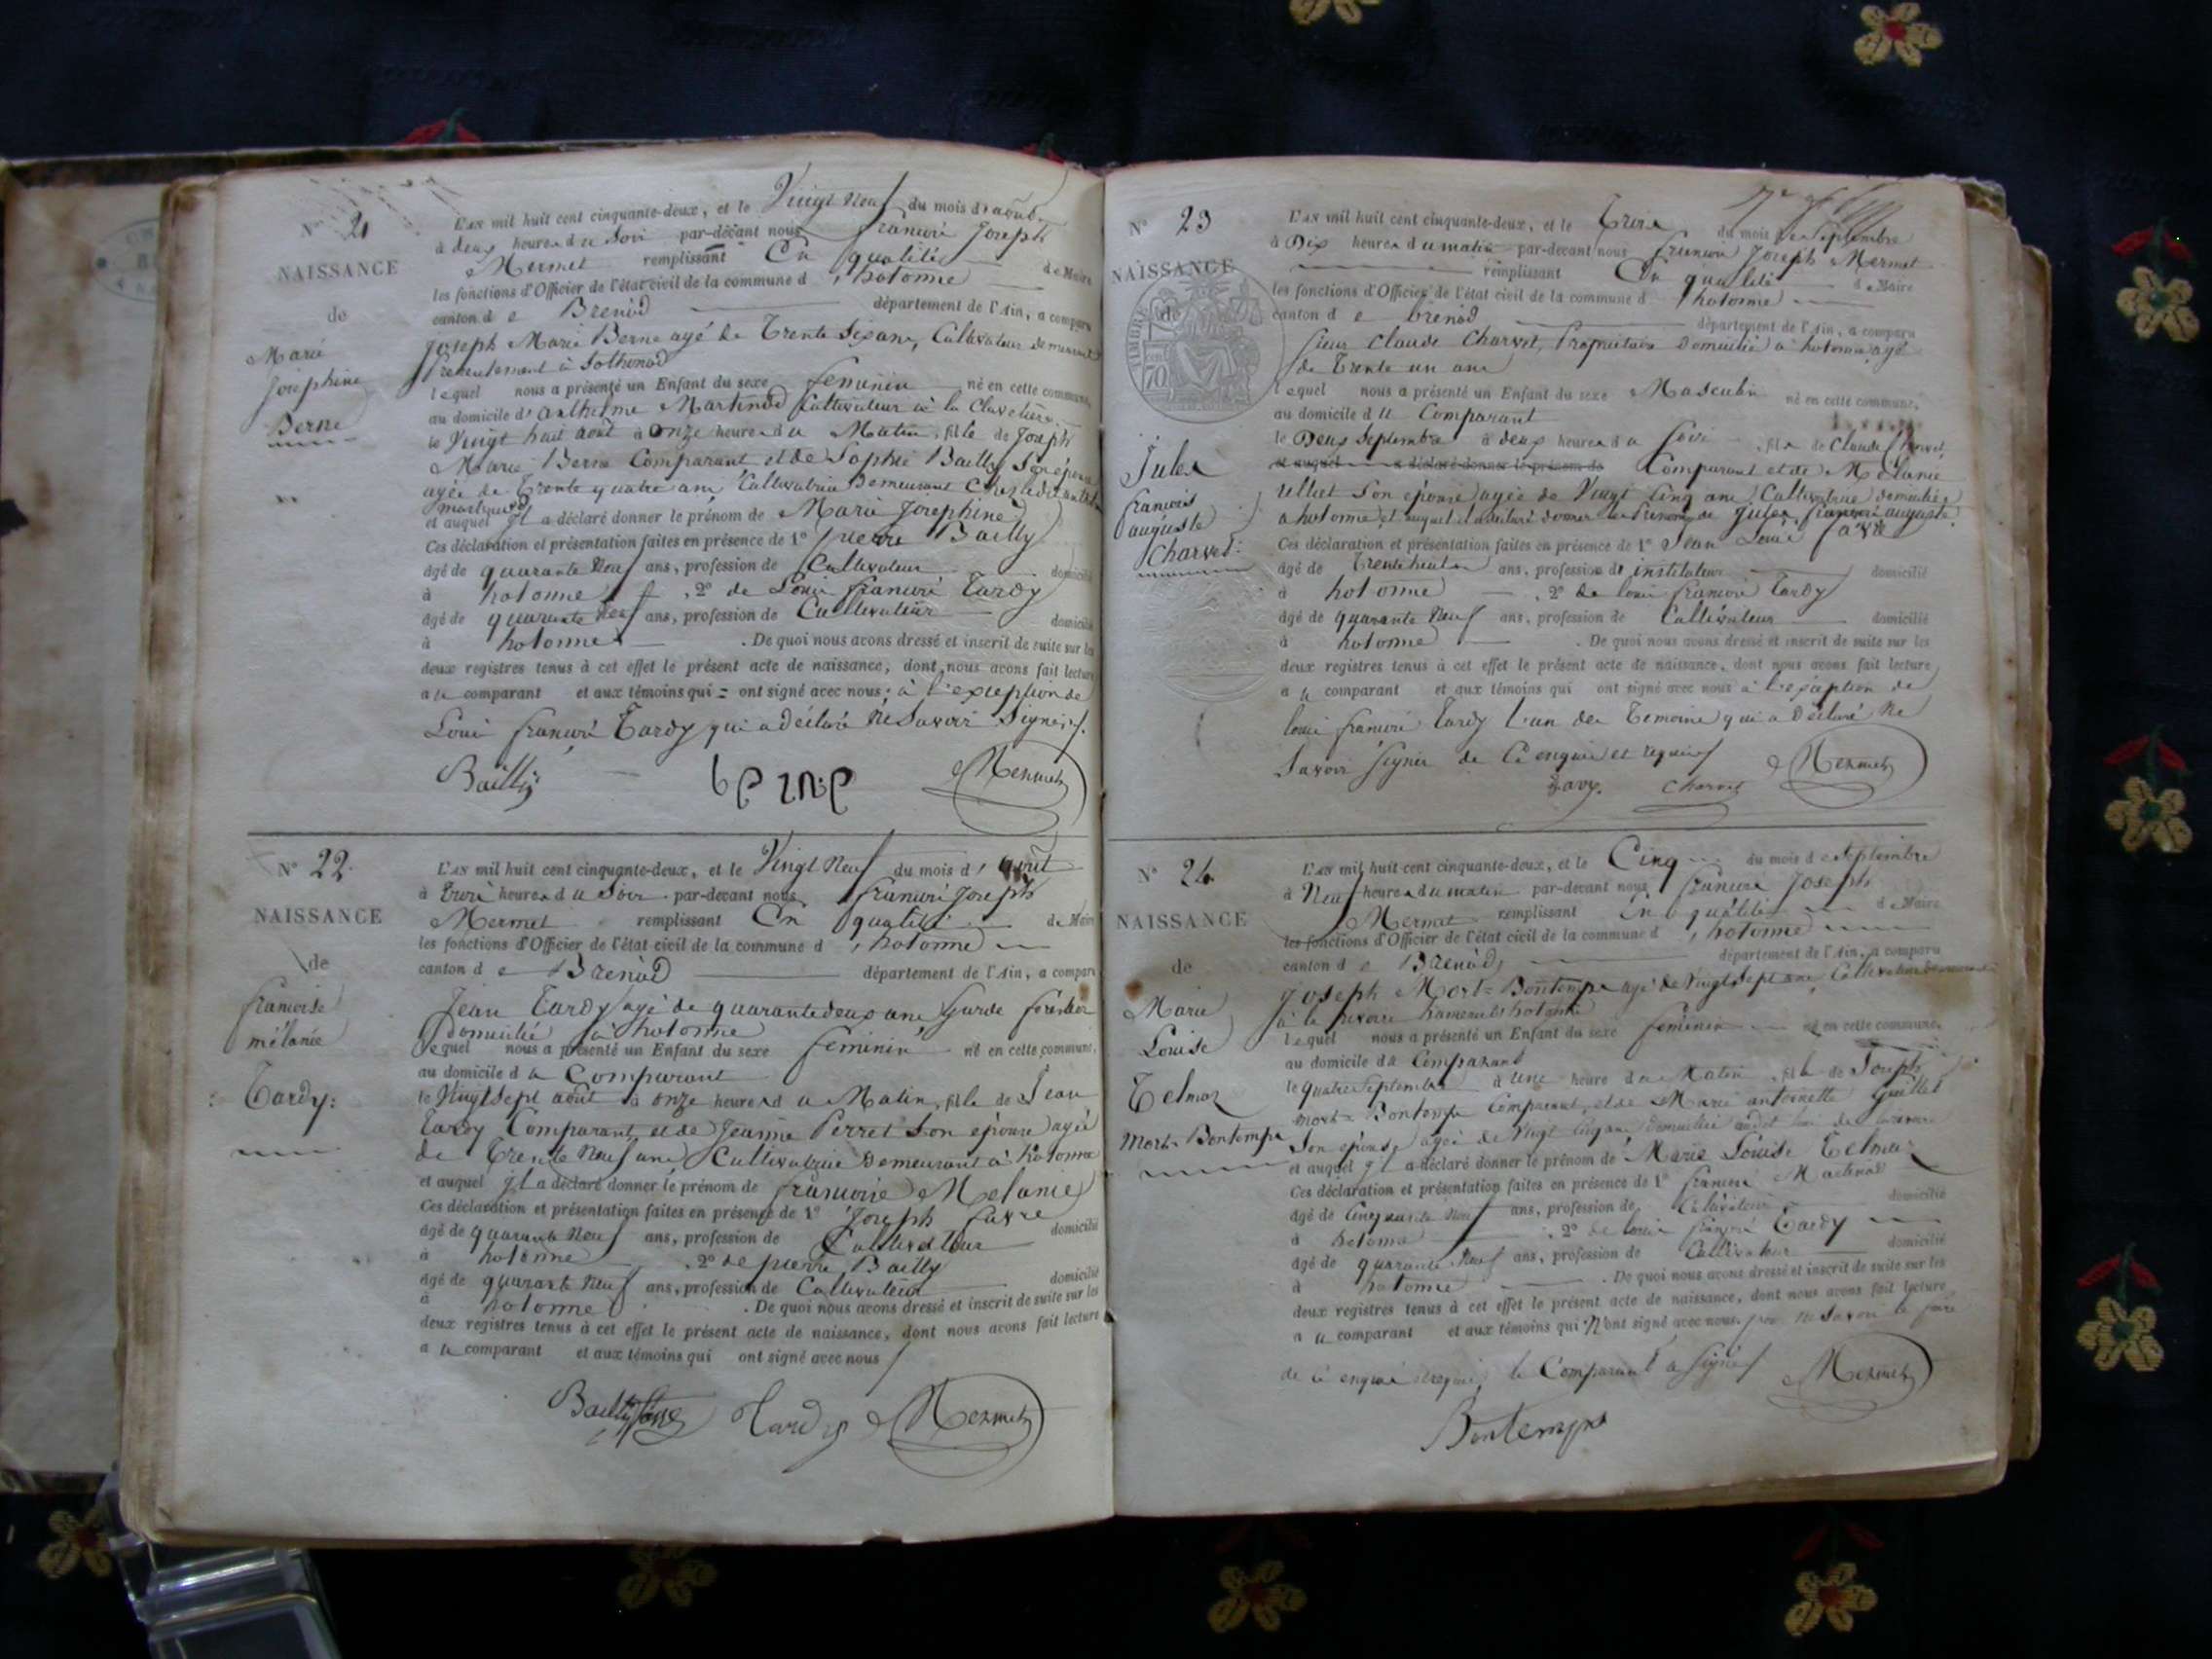 N° 21
NAISSANCE
de
Marie
Josephine
Berne
L'an mil huit cent cinquante-deux, et le Vingt Neuf du mois d'août
à deux heures du Soir par-devant nous François Joseph
Mermet remplissant En qualité de Maire
les fonctions d'Officier de l'état civil de la commune d'hotonne
canton de Brenod département de l'Ain, a comparu
Joseph Marie Berne agé de Trente Six ans, Cultivateur demeurant
à Sothonod
lequel nous a présenté un Enfant du sexe feminin né en cette commune,
au domicile d'anthelme Martinod Cultivateur à la
le Vingt huit août à onze heures du Matin, fille de Joseph
Marie Berne Comparant et de Sophie Bailly Son épouse
agée de Trente quatre ans Cultivatrice Demeurant
Martinod
et auquel Il a déclaré donner le prénom de Marie Josephine
Ces déclaration et présentation faites en présence de 1° pierre Bailly
âgé de quarante Neuf ans, profession de Cultivateur domicilié
à hotonne , 2° de Louis françois Tardy
âgé de quarante Neuf ans, profession de Cultivateur domicilié
à hotonne . De quoi nous avons dressé et inscrit de suite sur les
deux registres tenus à cet effet le présent acte de naissance, dont nous avons fait lecture
au comparant et aux témoins qui = ont signé avec nous; à l'exception de
Louis françois Tardy qui a déclaré Ne Savoir Signer
Bailly Berne Mermet
N° 22
NAISSANCE
de
françoise
mélanie
Tardy:
L'an mil huit cent cinquante-deux, et le Vingt Neuf du mois d'août
à trois heures du Soir par-devant nous françois Joseph
Mermet remplissant En qualité de Maire
les fonctions d'Officier de l'état civil de la commune d'hotonne
canton de Brenod département de l'Ain, a comparu
Jean Tardy agé de quarante deux ans Garde forestier
domicilié à hotonne
lequel nous a présenté un Enfant du sexe feminin né en cette commune,
au domicile du Comparant
le Vingt Sept août à onze heures du Matin, fille de Jean
Tardy Comparant, et de Jeanne Perret Son épouse agée
de Trente Neuf ans Cultivatrice Demeurant à hotonne
et auquel Il a déclaré donner le prénom de françoise Melanie
Ces déclaration et présentation faites en présence de 1° Joseph favre
âgé de quarante Neuf ans, profession de Cultivateur domicilié
à hotonne , 2° de pierre Bailly
âgé de quarante Neuf ans, profession de Cultivateur domicilié
à hotonne . De quoi nous avons dressé et inscrit de suite sur les
deux registres tenus à cet effet le présent acte de naissance, dont nous avons fait lecture
au comparant et aux témoins qui ont signé avec nous
Bailly Tardy Mermet
N° 23
NAISSANCE
de
TIMBRE
70
Jules
françois
auguste
Charvet
L'an mil huit cent cinquante-deux, et le Trois du mois de Septembre
à Dix heures du matin par-devant nous françois Joseph Mermet
remplissant En qualité de Maire
les fonctions d'Officier de l'état civil de la commune d'hotonne
canton de brenod département de l'Ain, a comparu
Sieur Claude Charvet, Propriétaire Domicilié à hotonne, agé
de Trente un ans
lequel nous a présenté un Enfant du sexe Masculin né en cette commune,
au domicile du Comparant
le Deux Septembre à deux heures du Soir, fils de Claude Charvet
et auquel a déclaré donner le prénom de Comparant et de Mélanie
Son épouse agée de Vingt Cinq ans Cultivatrice domiciliée
a hotonne, et auquel il a déclaré donner les Prénoms de Jules françois auguste
Ces déclaration et présentation faites en présence de 1° Jean Louis
âgé de Trente huit ans, profession d'instituteur domicilié
à hotonne , 2° de louis françois Tardy
âgé de quarante Neuf ans, profession de Cultivateur domicilié
à hotonne . De quoi nous avons dressé et inscrit de suite sur les
deux registres tenus à cet effet le présent acte de naissance, dont nous avons fait lecture
au comparant et aux témoins qui ont signé avec nous à l'exception de
louis françois Tardy l'un des Temoins qui a Déclaré Ne
Savoir Signer de ce enquis et requis
Charvet Mermet
N° 24
NAISSANCE
de
Marie
Louise
Telma
Mort=Bontemps
L'an mil huit cent cinquante-deux, et le Cinq du mois de Septembre
à Neuf heures du matin par-devant nous françois Joseph
Mermet remplissant En qualité de Maire
les fonctions d'Officier de l'état civil de la commune d'hotonne
canton de Brenod département de l'Ain, a comparu
Joseph Mort=Bontemps agé de Vingt Sept ans, Cultivateur demeurant
à la hameau d'hotonne
lequel nous a présenté un Enfant du sexe feminin né en cette commune,
au domicile du Comparant
le quatre Septembre à une heure du Matin, fille de Joseph
Mort=Bontemps Comparant, et de Marie antoinette
Son épouse agée de Vingt Cinq ans Domiciliée
et auquel Il a déclaré donner le prénom de Marie Louise Telma
Ces déclaration et présentation faites en présence de 1° françois Martinod
âgé de Cinquante Neuf ans, profession de Cultivateur domicilié
à hotonne , 2° de louis françois Tardy
âgé de quarante Neuf ans, profession de Cultivateur domicilié
à hotonne . De quoi nous avons dressé et inscrit de suite sur les
deux registres tenus à cet effet le présent acte de naissance, dont nous avons fait lecture
au comparant et aux témoins qui N'ont signé avec nous, pour ne Savoir le faire
de ce enquis et requis, le Comparant a Signé Mermet
Bontemps